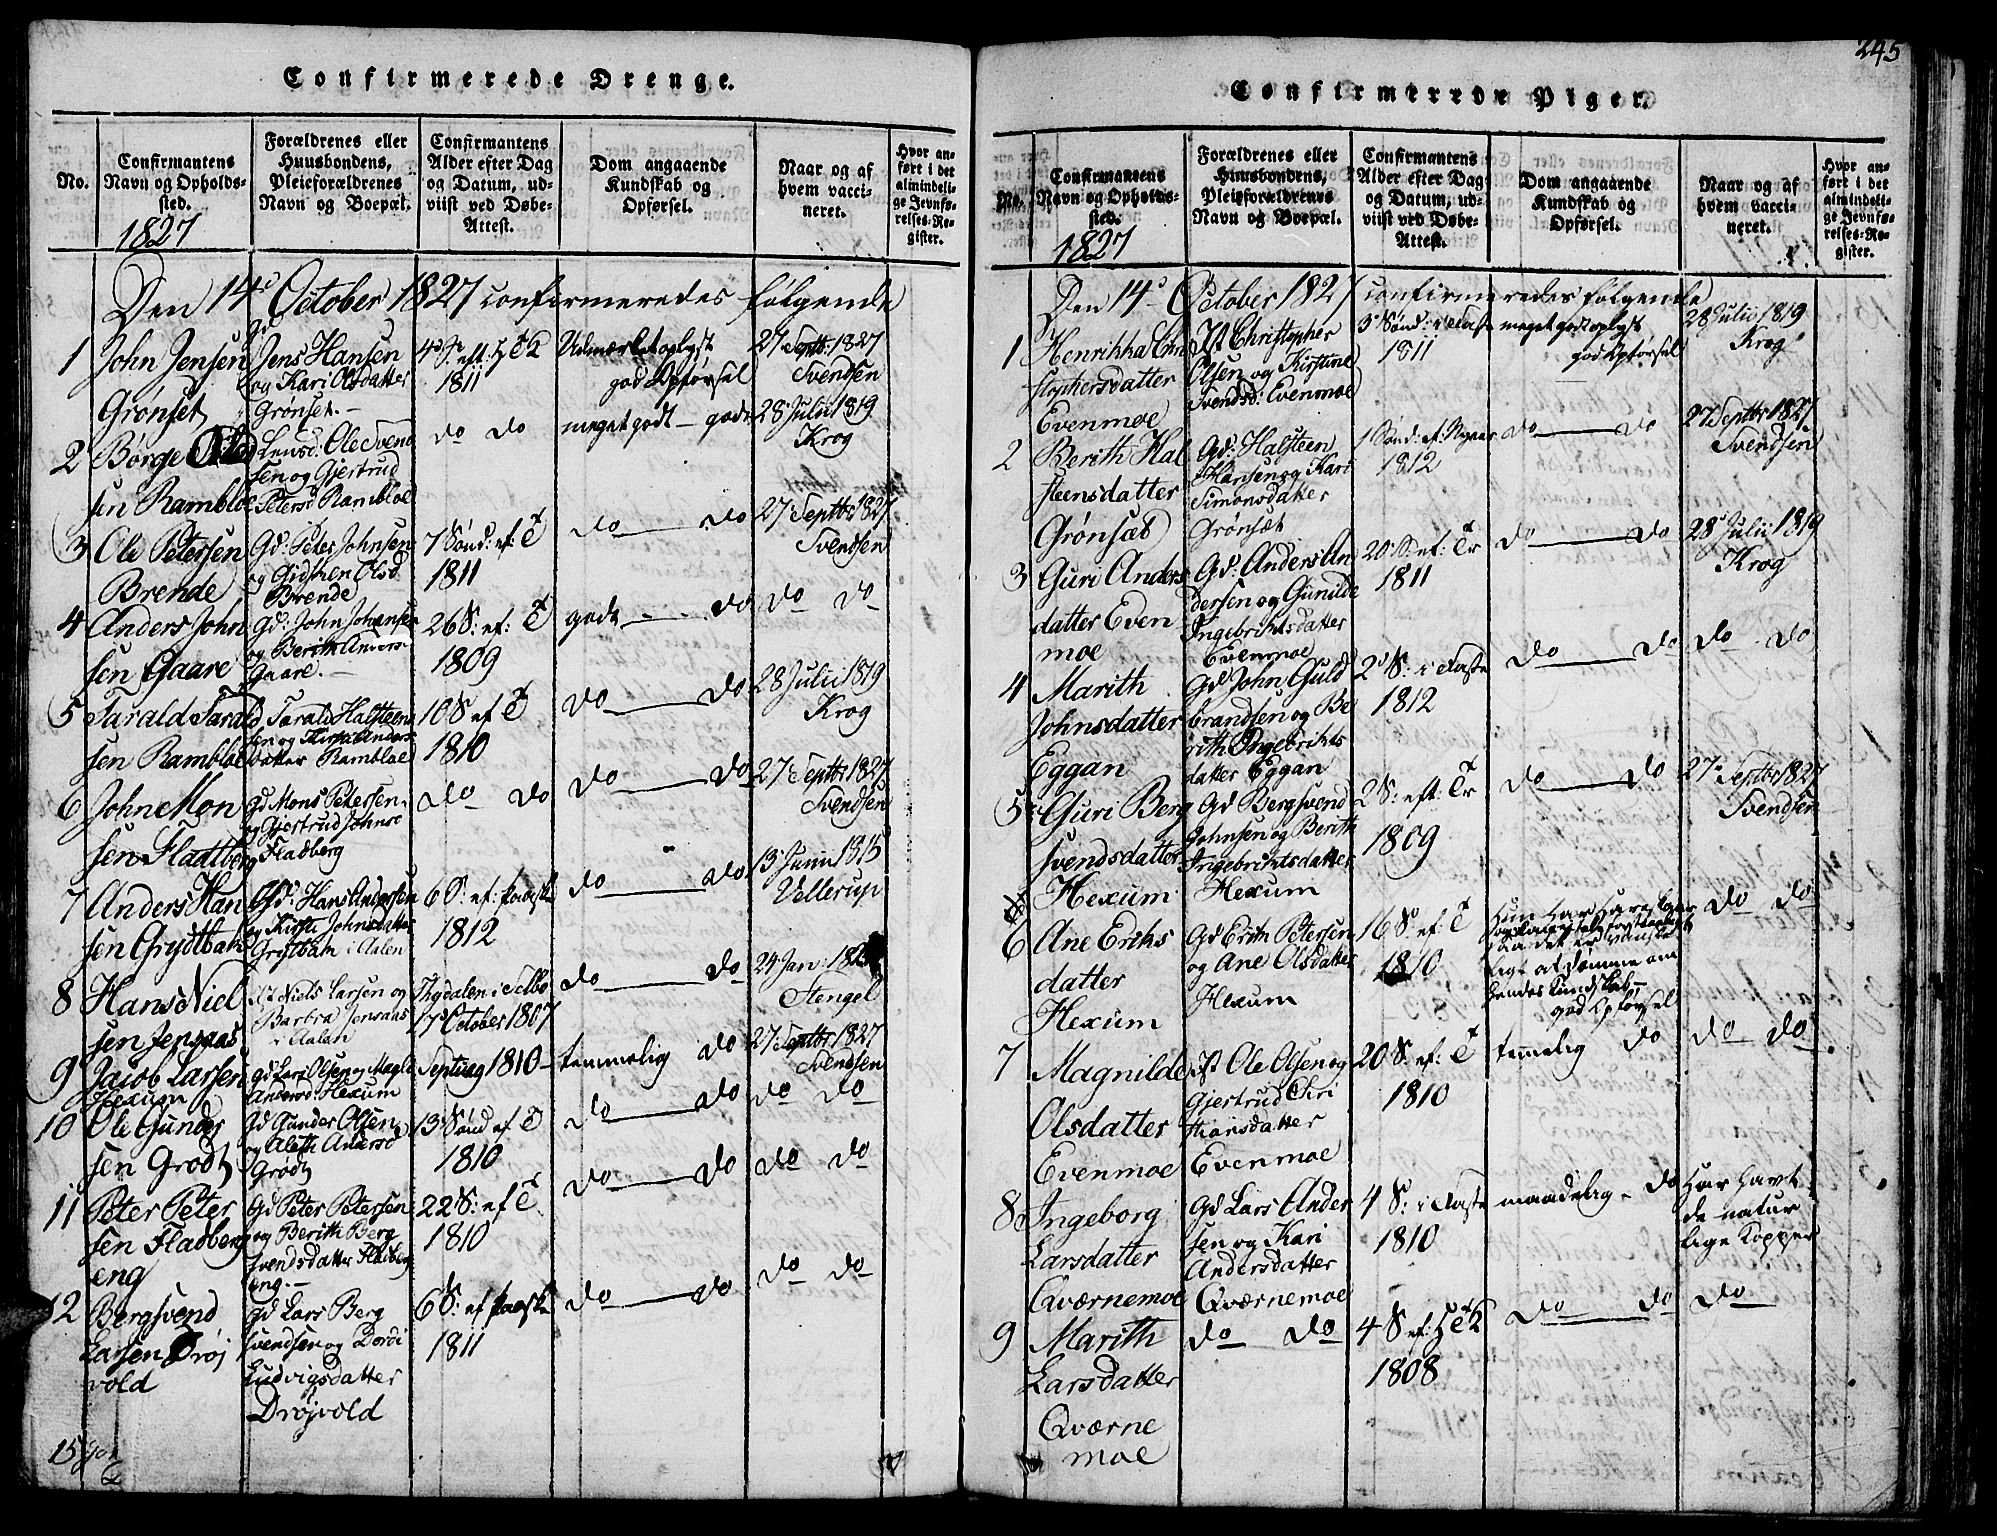 Confirmerede Drenge.
No.
Confirmantens
Navn og Opholds-
sted.
1827
Forældrenes eller
Huusbondens,
Pleieforældrenes
Navn og Boepæl.
Confirmantens
Alder efter Dag
og Datum, ud-
viist ved Døbe-
Attest.
Dom angaaende
Kundskab og
Opførsel.
Naar og af
hvem vacci-
neret.
Hvor an-
ført i det
almindeli-
ge Jevnfø-
relses-Re-
gister.
Den 14d October 1827 confirmeredes følgende
1
John Jensen
Grønset
Gd
Jens Hansen
og Kari Olsdatter
Grønset.-
1811
Udmærket oplyst
god Opførsel
27 Septbr 1827
Svendsen
2
Børge
sen Rambloe
Ole Svend
sen og Gjertrud
Petersd Rambloe
do do
meget godt - godt
28 Julii 1819
Krog
3
Ole Petersen
Brende
Gd: Peter Johnsen
Olsd
Brende
7 Sønd: ef: T
1811
do do
27 Septbr 1827
Svendsen
4
Anders John
sen Gaare
Gd: John Johansen
og Berith Anders
Gaare.-
26 S: ef: T
1809
godt - do
do do
5
Tarald Tarald
sen Rambloe
Tarald Halsteen
sen og Anders
datter Rambloe
10 S ef T
1810
do do
28 Julii 1819
Krog
6
John Mon
sen Fladtberg
Gd Mons Petersen
og Gjertrud Johns
Fladberg
do do
do do
27 Septbr 1827
Svendsen
7
Anders Han
sen Grydtbak
Gd: Hans Andersen
og Kirsti Johnsdatter
i Aalen
6 S: ef: paaske
1812
do do
13 Junii 1815
Vellerup
8
Hans Niel
sen Jensaas
Niels Larsen og
Barbra Jensaas
i Aalen
Tydalen i Selbo
17d October 1807
do do
24 Jan:
Stengel
9
Jacob Larsen
Hexum
Gd Lars Olsen og
Andersd: Hexum
1810
temmelig do
27 Septbr 1827
Svendsen
10
Ole Gunder
sen Grodt
Gd Gunder Olsen
og Aleth Andersd
Grodt
13 Sønd ef T
1810
do do
do do
11
Peter Peter
sen Fladberg
eng
Gd Peter Petersen
og Berith Berg
svendsdatter Fladberg
eng.-
22 S: ef T.
1810
do do
do do
12
Bergsvend
Larsen Drøj
vold
Gd Lars Berg
svendsen og Dordi
Ludvigsdatter
Drøjvold
6 S: ef paaske
1811
do do
do do
15
245
Confirmerede Piger.
No.
Confirmantens
Navn og Opholds-
sted.
1827
Forældrenes eller
Huusbondens,
Pleieforældrenes
Navn og Boepæl.
Confirmantens
Alder efter Dag
og Datum, ud-
viist ved Døbe-
Attest.
Dom angaaende
Kundskab og
Opførsel.
Naar og af
hvem vacci-
neret.
Hvor an-
ført i det
almindeli-
ge Jevnfø-
relses-Re-
gister.
Den 14d October 1827 confirmeredes følgende
1
Henrikka Chri
stophersdatter
Evenmoe
Christopher
Olsen og Kirstine
Svendsd: Evenmoe
3 Sønd: i Faste
1811
meget godt oplyst
god Opførsel
28 Julii 1819
Krog
2
Berith Hal
steensdatter
Grønsæt
Gd: Halsteen
Hansen og Kari
Simonsdatter
Grønsæt
1 Sønd: ef: Nyaar
1812
do do
27 Septbr 1827
Svendsen
3
Guri Anders
datter Even
moe
Gd: Anders An
dersen og Gunilde
Ingebrichtsdatter
Evenmoe
20 S: ef: Tr
1811
do do
28 Julii 1819
Krog
4
Marith
Johnsdatter
Eggan
Gd John Guld
brandsen og Be
rith Ingebrikts
datter Eggan
2 S: i Faste
1812
do do
do do
5
Guri Berg
svendsdatter
Hexum
Gd Bergsvend
Johnsen og Berith
Ingebriktsdatter
Hexum
2 S: eft: Tr
1809
do do
27 Septbr 1827
Svendsen
6
Ane Eriks
datter
Hexum
Gd Erik Petersen
og Ane Olsdatter
Hexum
16 S. ef T
1810
Hun har
saa det er vanske
ligt at dømme om
hendes Kundskab -
god Opførsel
do do
7
Magnilde
Olsdatter
Evenmoe
Ole Olsen og
Gjertrud Siri
Hansdatter
Evenmoe
20 S: ef: T
1810
temelig do
do do
8
Ingeborg
Larsdatter
Qværnemoe
Gd Lars Ander
sen og Kari
Andersdatter
Qværnemoe
4 S: i Faste
1810
maadelig - do
Har havt
de natur
lige Kopper
9
Marith
Larsdatter
Qværne
moe
do do
1808
do do
do